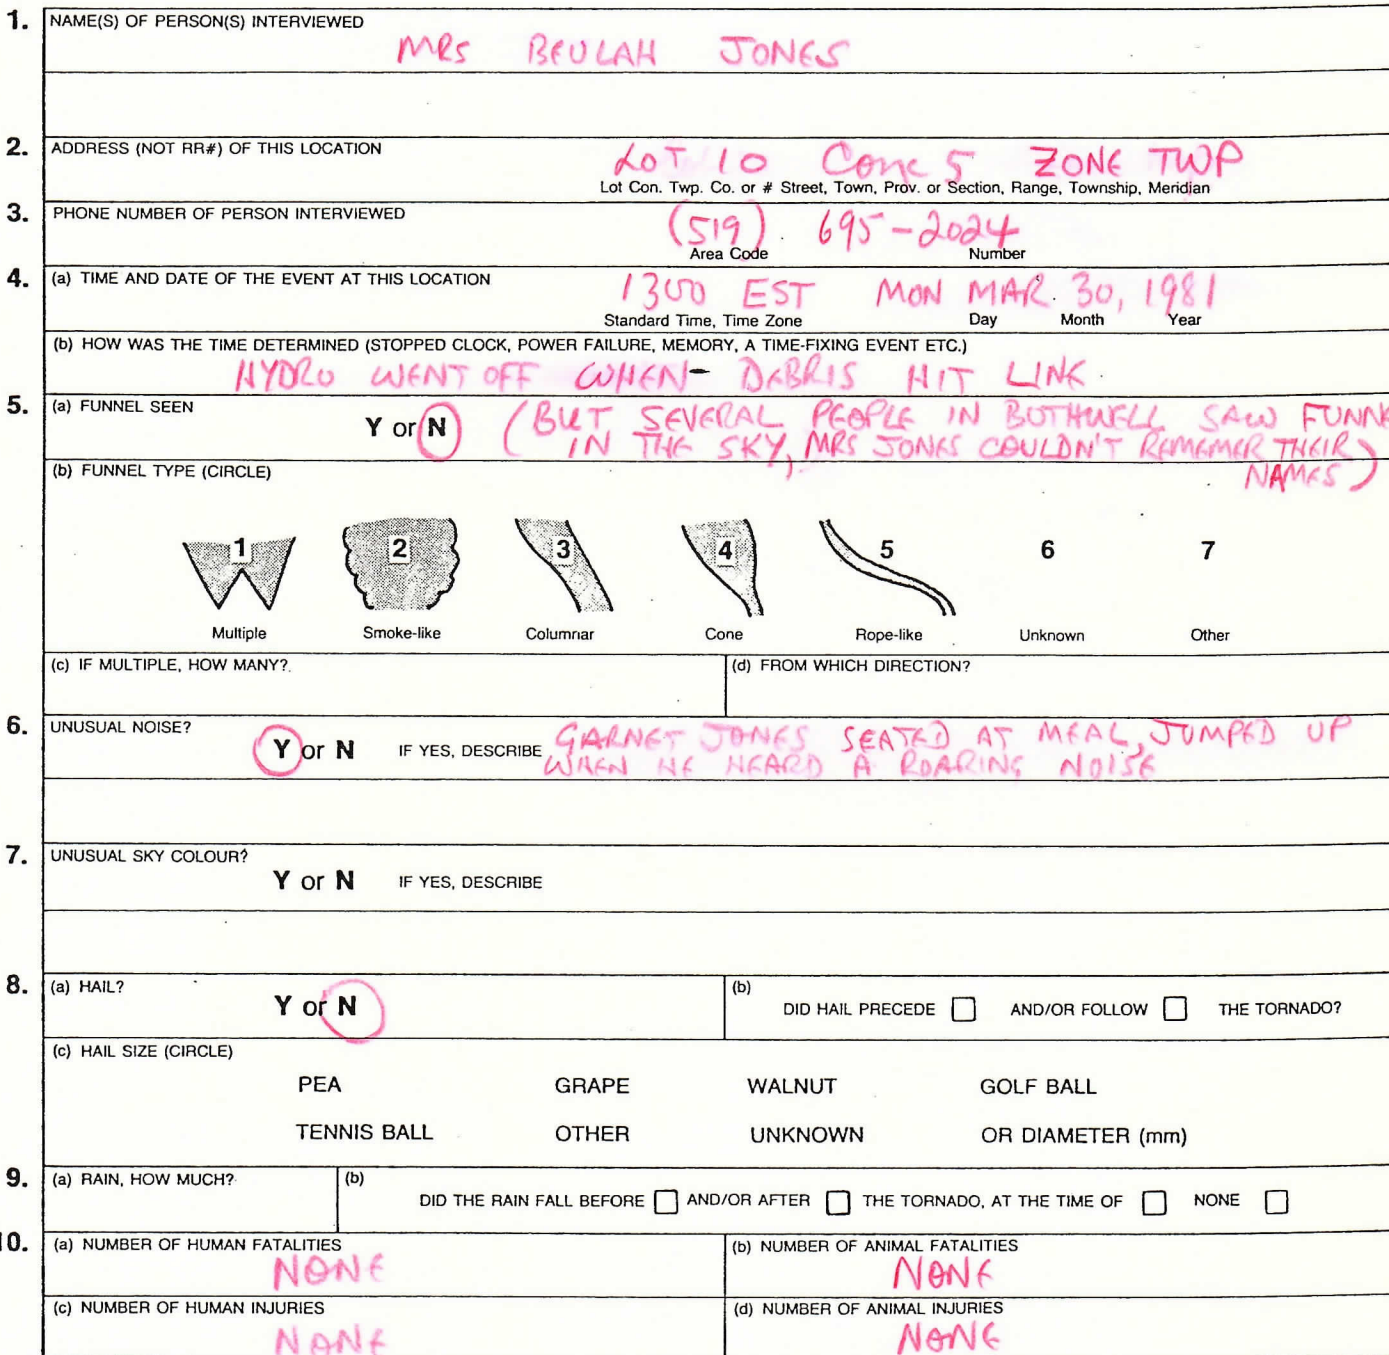 1. NAME(S) OF PERSON(S) INTERVIEWED
MRS BEULAH JONES
2. ADDRESS (NOT RR#) OF THIS LOCATION
LOT 10 Conc 5 ZONE TWP
Lot Con. Twp. Co. or # Street, Town, Prov. or Section, Range, Township, Meridian
3. PHONE NUMBER OF PERSON INTERVIEWED
(519) 695-2024
Area Code Number
4. (a) TIME AND DATE OF THE EVENT AT THIS LOCATION
1300 EST MON MAR. 30, 1981
Standard Time, Time Zone Day Month Year
(b) HOW WAS THE TIME DETERMINED (STOPPED CLOCK, POWER FAILURE, MEMORY, A TIME-FIXING EVENT ETC.)
HYDRO WENT OFF WHEN DEBRIS HIT LINE
5. (a) FUNNEL SEEN
Y or N (BUT SEVERAL PEOPLE IN BOTHWELL SAW FUNNE
IN THE SKY, MRS JONES COULDN'T REMEMER THEIR
NAMES)
(b) FUNNEL TYPE (CIRCLE)
1 2 3 4 5 6 7
Multiple Smoke-like Columnar Cone Rope-like Unknown Other
(c) IF MULTIPLE, HOW MANY? (d) FROM WHICH DIRECTION?
6. UNUSUAL NOISE?
Y or N IF YES, DESCRIBE GARNET JONES SEATED AT MEAL, JUMPED UP
WHEN HE HEARD A ROARING NOISE
7. UNUSUAL SKY COLOUR?
Y or N IF YES, DESCRIBE
8. (a) HAIL? (b)
Y or N DID HAIL PRECEDE AND/OR FOLLOW THE TORNADO?
(c) HAIL SIZE (CIRCLE)
PEA GRAPE WALNUT GOLF BALL
TENNIS BALL OTHER UNKNOWN OR DIAMETER (mm)
9. (a) RAIN, HOW MUCH? (b)
DID THE RAIN FALL BEFORE AND/OR AFTER THE TORNADO, AT THE TIME OF NONE
10. (a) NUMBER OF HUMAN FATALITIES (b) NUMBER OF ANIMAL FATALITIES
NONE NONE
(c) NUMBER OF HUMAN INJURIES (d) NUMBER OF ANIMAL INJURIES
NONE NONE